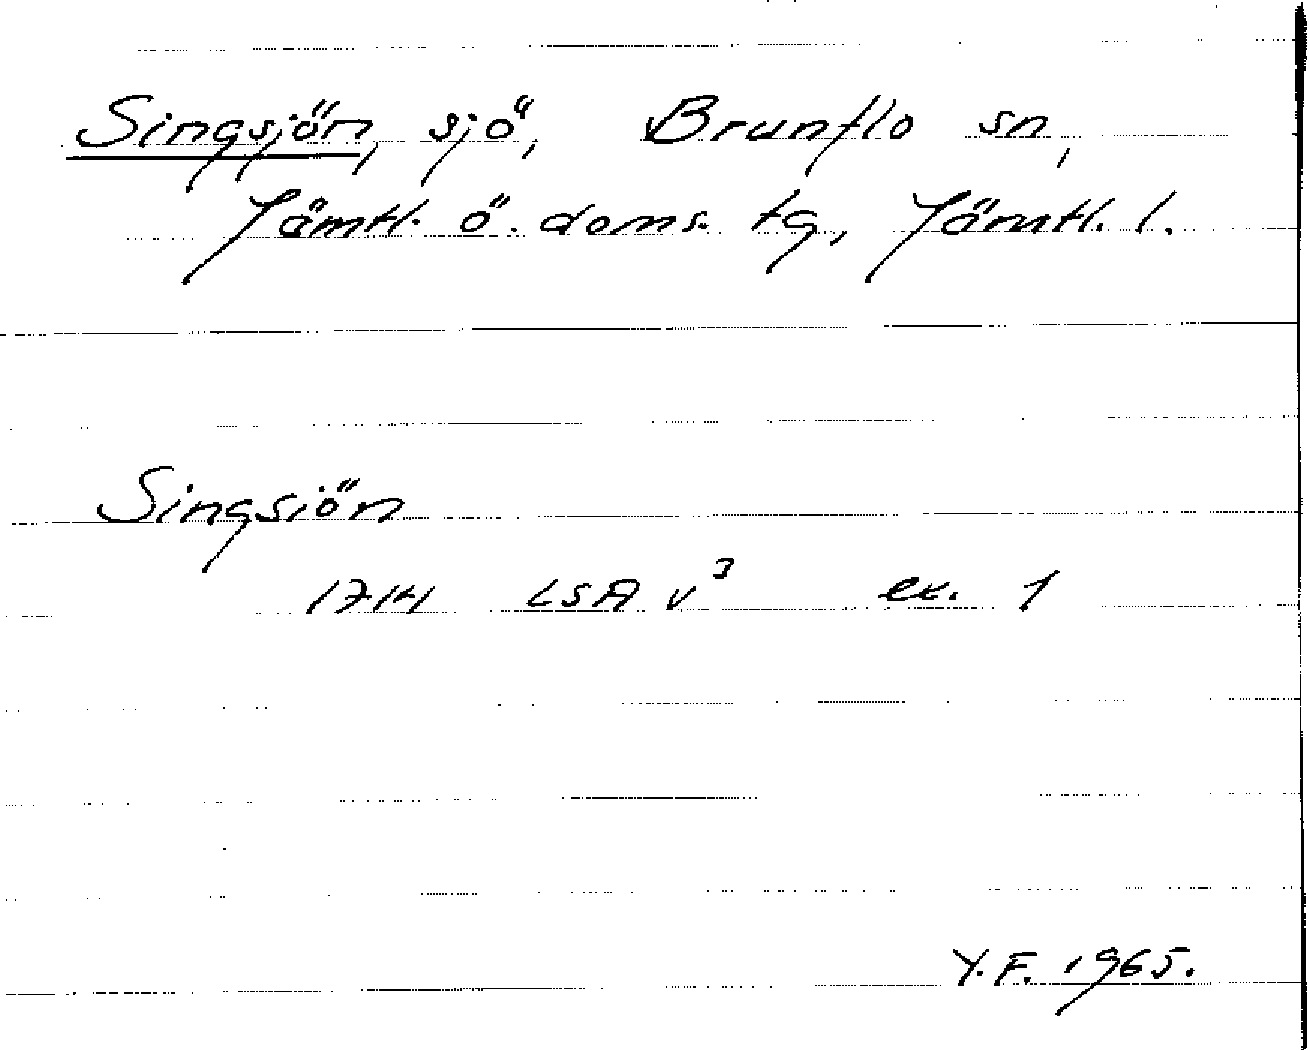 Singsjön, sjö, Brunflo sn,
Jämtl. ö. doms. tg, Jämtl. l.
Singsiön
1714 LSA v³ ex. 1
Y.F. 1965.